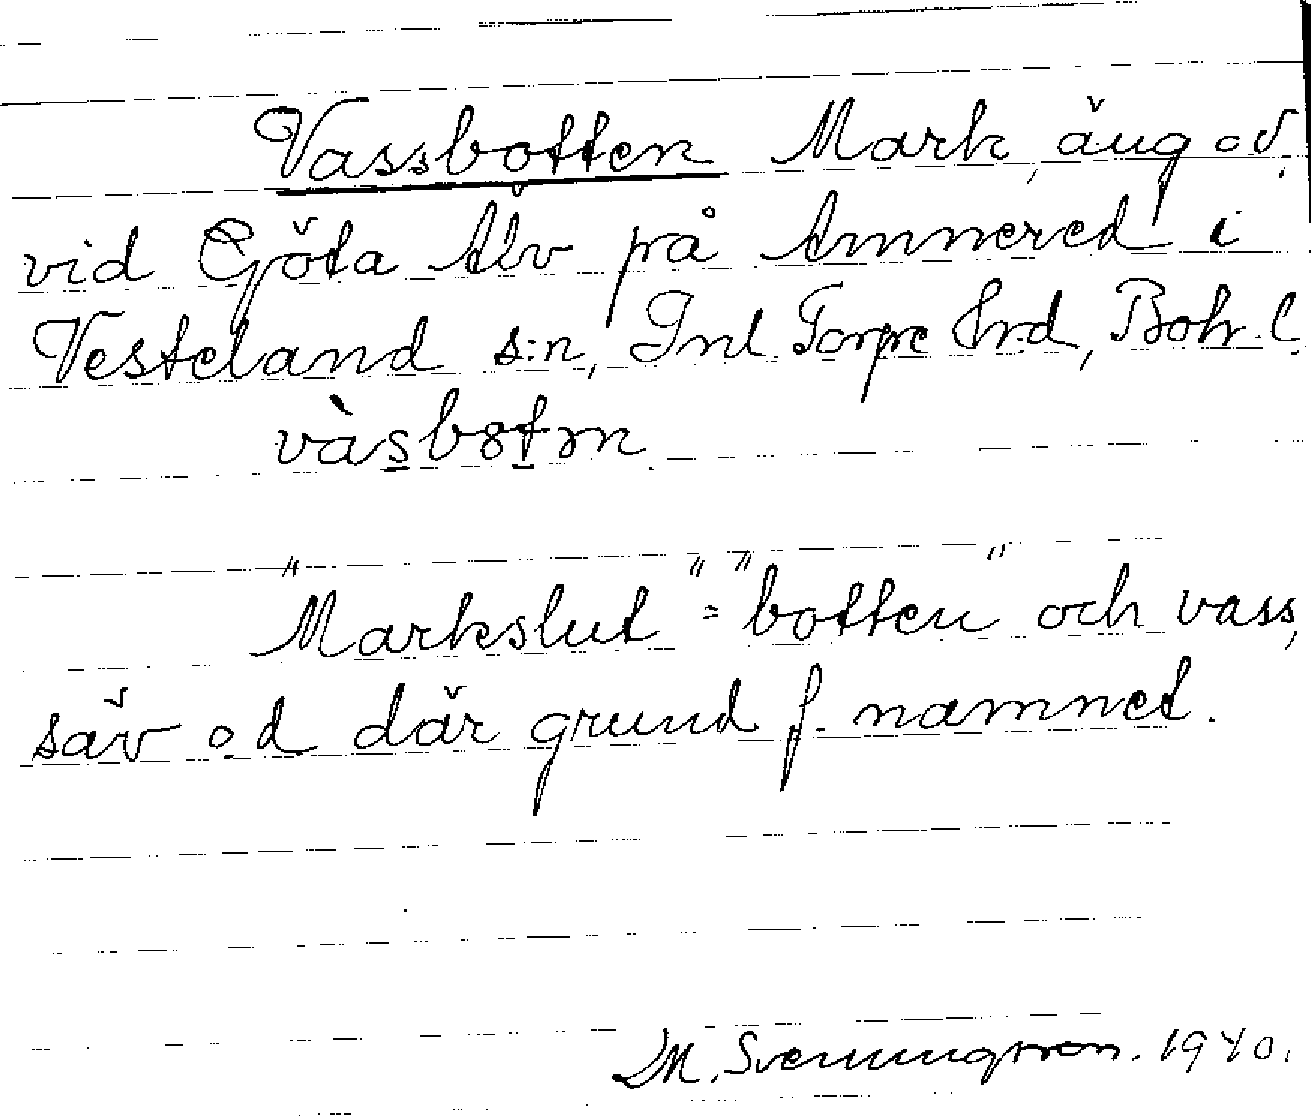 Vassbotten Mark, äng o d.
vid Göta Älv på Ämnered i
Vesteland s:n, Inl Torpe Hrd, Bohr. l.
vàsbotṃ
"Markslut" = "botten" och vass,
säv o.d där grund f. namnet.
M. Svenungsson. 1940.